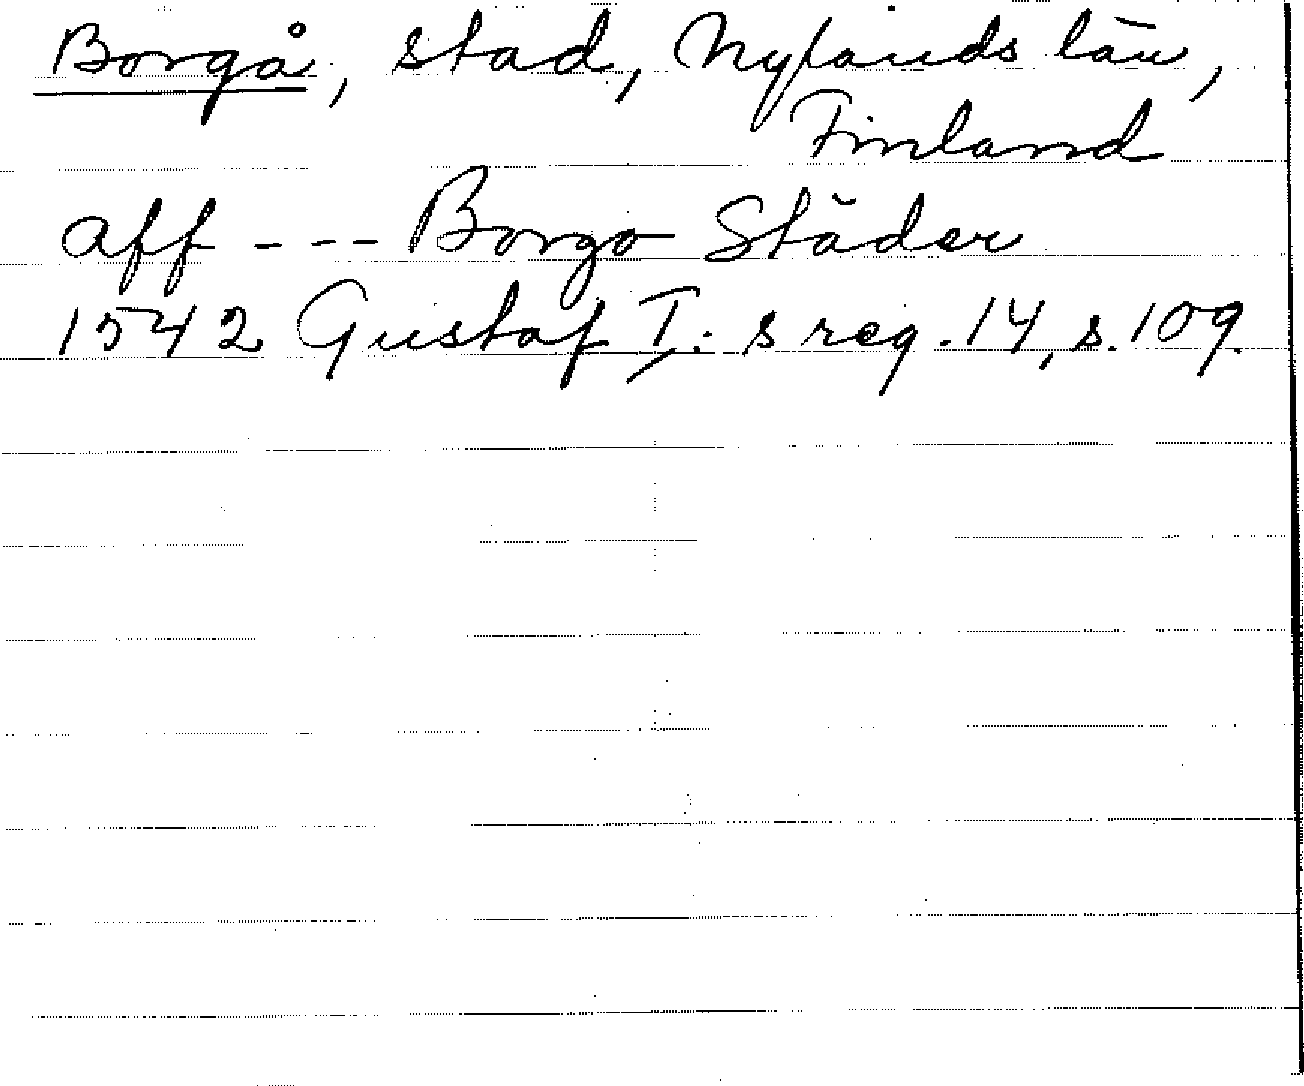 Borgå, stad, Nylands län,
Finland
aff - - - Borgo Städer
1542 Gustaf I: s reg. 14, s. 109.